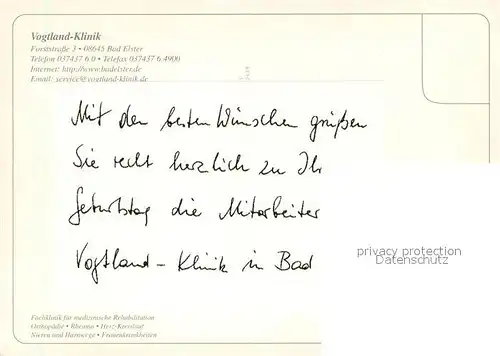 Vogtland-Klinik
Forststraße 3 • 08645 Bad Elster
Telefon 037437 6 0 • Telefax 037437 6 4900
Internet: http://www.badelster.de
Email: service@vogtland-klinik.de
Mit den besten Wünschen grüßen
Sie recht herzlich zu Ihr
Geburtstag die Mitarbeiter
Vogtland - Klinik in Bad
privacy protection
Datenschutz
Fachklinik für medizinische Rehabilitation
Orthopädie • Rheuma • Herz-Kreislauf
Nieren und Harnwege • Frauenkrankheiten